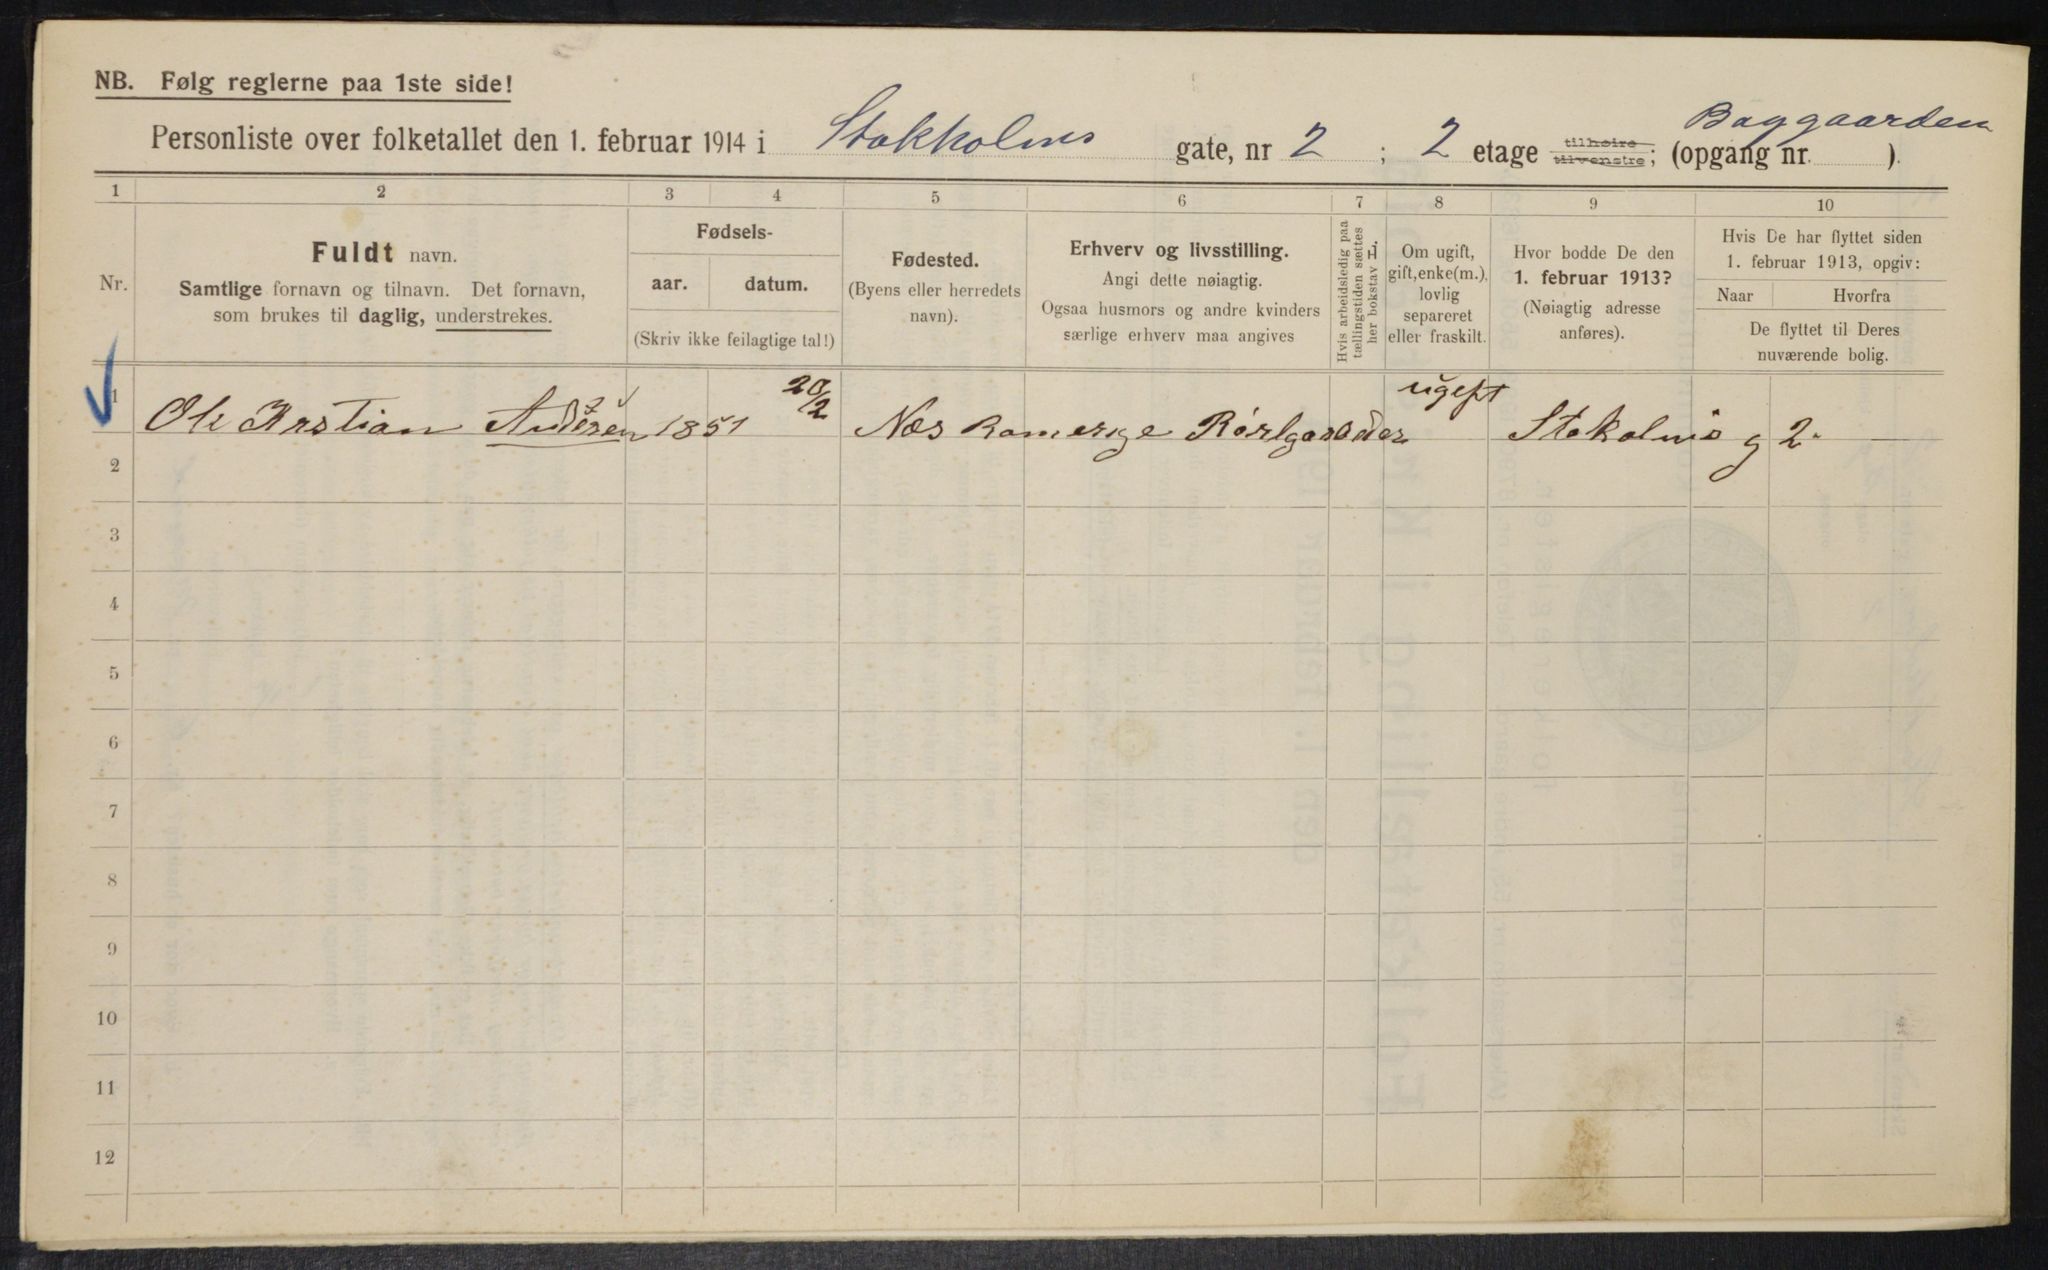 NB. Følg reglerne paa 1ste side!
Baggaarden
Personliste over folketallet den 1. februar 1914 i Stokholms gate, nr 2 ; 2 etage tilhøire tilvenstre; (opgang nr. ).
1 2 3 4 5 6 7 8 9 10
Nr.
Fuldt navn.
Samtlige fornavn og tilnavn. Det fornavn,
som brukes til daglig, understrekes.
Fødsels-
aar. datum.
(Skriv ikke feilagtige tal!)
Fødested.
(Byens eller herredets
navn).
Erhverv og livsstilling.
Angi dette nøiagtig.
Ogsaa husmors og andre kvinders
særlige erhverv maa angives
Hvis arbeidsledig paa
tællingstiden sættes
her bokstav L.
Om ugift,
gift, enke(m.),
lovlig
separeret
eller fraskilt.
Hvor bodde De den
1. februar 1913?
(Nøiagtig adresse
anføres).
Hvis De har flyttet siden
1. februar 1913, opgiv:
Naar Hvorfra
De flyttet til Deres
nuværende bolig.
1 Ole Krstian Andersen 1851 20/2 Næs Romerige ugift Stokolms g 2.
2
3
4
5
6
7
8
9
10
11
12